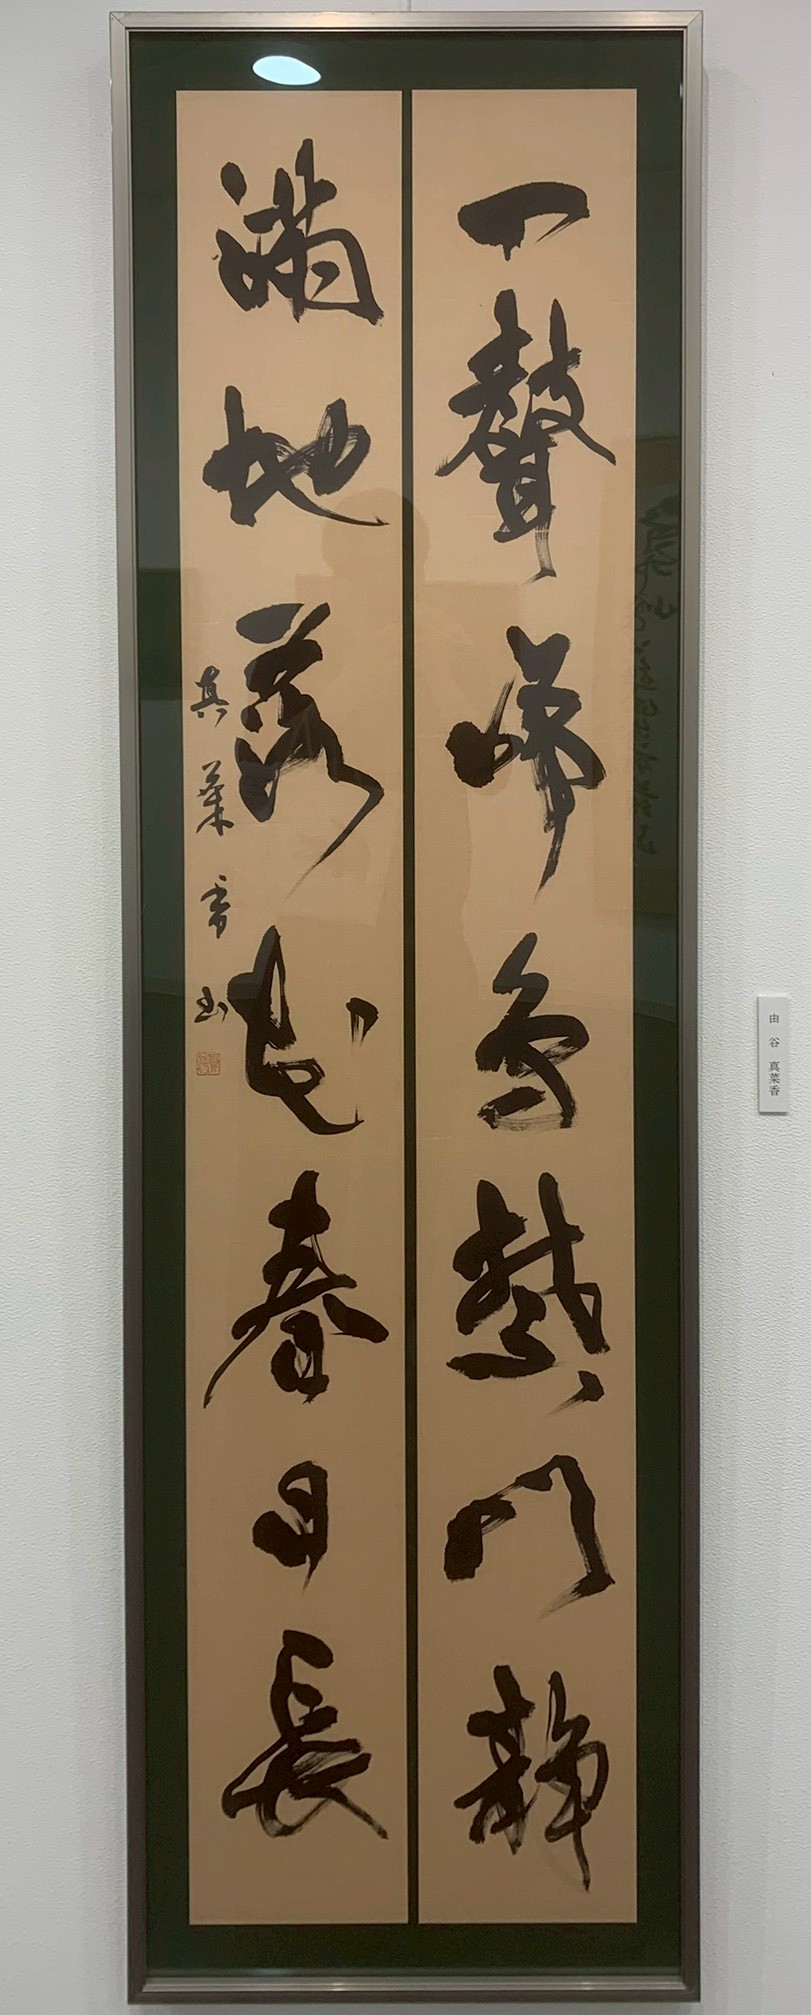 一聲啼鳥禁門靜
滿地落花春日長
真菜香
由谷 真菜香